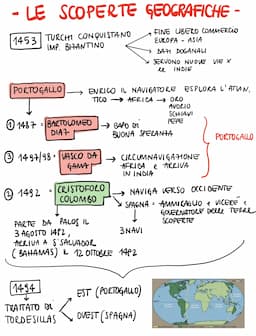 - LE SCOPERTE GEOGRAFICHE -
1453
TURCHI CONQUISTANO
IMP. BIZANTINO
FINE LIBERO COMMERCIO
EUROPA - ASIA
DAZI DOGANALI
SERVONO NUOVE VIE X
LE INDIE
PORTOGALLO
ENRICO IL NAVIGATORE ESPLORA L'ATLAN.
TICO → AFRICA → ORO
AVORIO
SCHIAVI
PEPE
1 1487 - BARTOLOMEO
DIAZ
CAPO DI
BUONA SPERANZA
PORTOGALLO
3 1497/98 - VASCO DA
GAMA
CIRCUMNAVIGAZIONE
AFRICA E ARRIVA
IN INDIA
1492 - CRISTOFORO
COLOMBO
NAVIGA VERSO OCCIDENTE
SPAGNA - AMMIRAGLIO E VICERÈ E
GOVERNATORE DELLE TERRE
SCOPERTE
3 NAVI
PARTE DA PALOS IL
3 AGOSTO 1492,
ARRIVA A S. SALVADOR
(BAHAMAS) IL 12 OTTOBRE 1492
1494
TRATTATO DI
TORDESILLAS
EST (PORTOGALLO)
OVEST (SPAGNA)